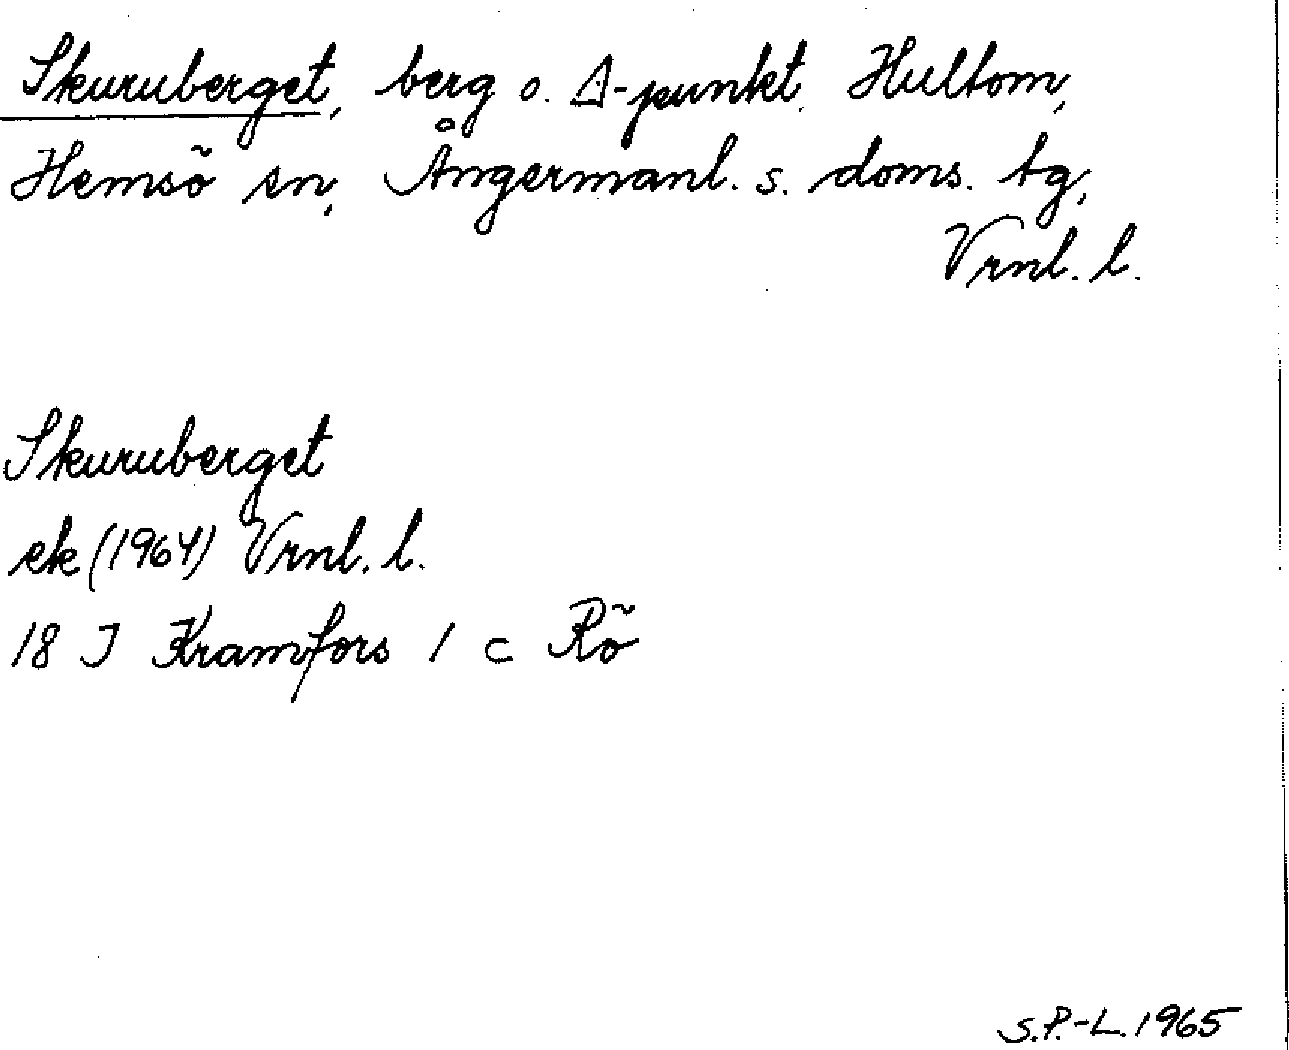 Skuruberget, berg o. Δ-punkt, Hultom,
Hemsö sn, Ångermanl. s. doms. tg,
Vrnl. l.
Skuruberget
ek (1964) Vrnl. l.
18 I Kramfors 1 c Rö
S.P.-L. 1965